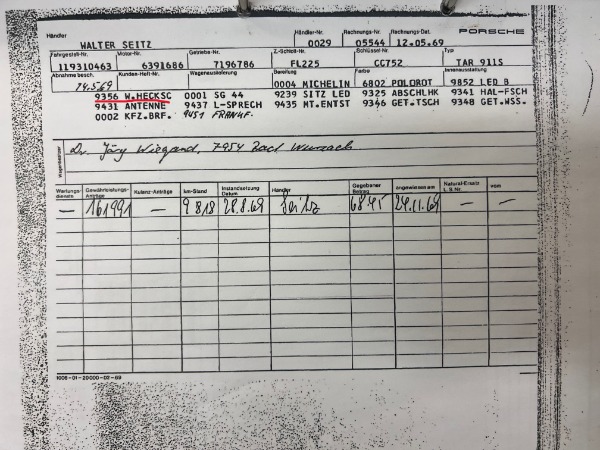 Händler Händler-Nr. Rechnungs-Nr. Rechnungs-Dat. PORSCHE
WALTER SEITZ 0029 05544 12.05.69
Fahrgestell-Nr. Motor-Nr. Getriebe-Nr. Z.-Schloß-Nr. Schlüssel-Nr. Typ
119310463 6391686 7196786 FL225 CC752 TAR 911S
Abnahme besch. Kunden-Heft-Nr. Wagenauslieferung Bereifung Farbe Innenausstattung
14.5.69 0004 MICHELIN 6802 POLOROT 9852 LED B
9356 W.HECKSC 0001 SG 44 9239 SITZ LED 9325 ABSCHLHK 9341 HAL-FSCH
9431 ANTENNE 9437 L-SPRECH 9435 MT.ENTST 9346 GET.TSCH 9348 GET.WSS.
0002 KFZ.BRF. 9451 FRANKF.
Wagenbesitzer
Dr. Jörg Wiegand, 7954 Bad Wurzach
Wartungs-dienste Gewährleistungs-Anträge Kulanz-Anträge km-Stand Instandsetzung Datum Händler Gegebener Betrag angewiesen am Natural-Ersatz L.S.Nr. vom
— 161991 — 9 818 28.8.69 Seitz 68.45 24.11.69 — —
1008-01-20000-02-69